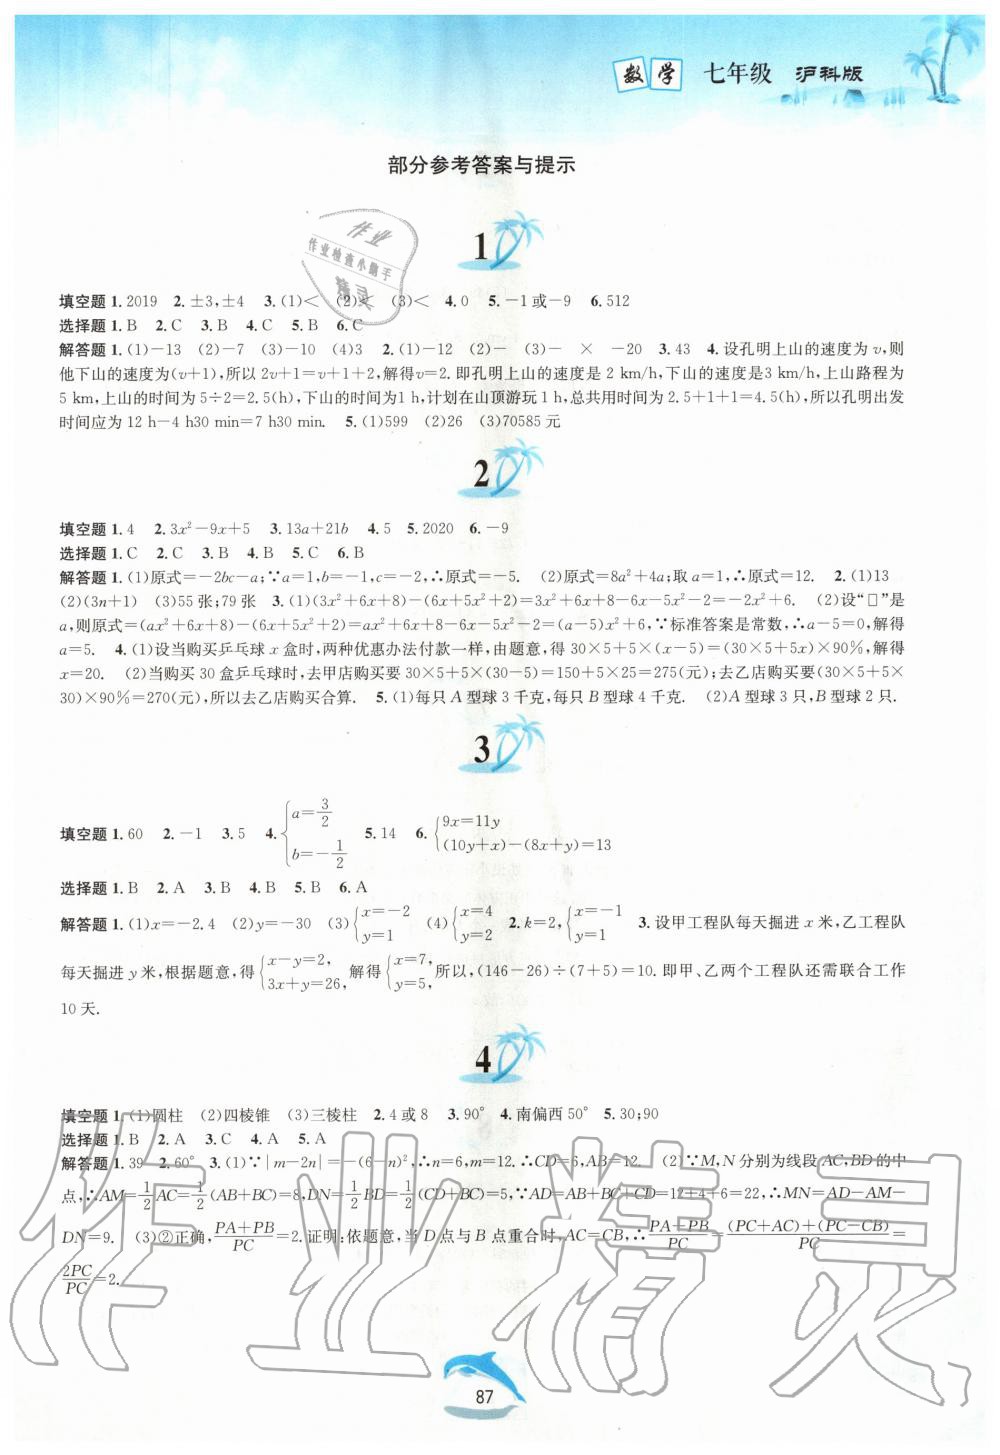 数学 七年级 沪科版
部分参考答案与提示
1
作业
作业检查小助手
精灵
填空题 1. 2019 2. ±3,±4 3. (1)< (2)< (3)< 4. 0 5. -1或-9 6. 512
选择题 1. B 2. C 3. B 4. C 5. B 6. C
解答题 1. (1)-13 (2)-7 (3)-10 (4)3 2. (1)-12 (2)- (3)- × -20 3. 43 4. 设孔明上山的速度为v,则
他下山的速度为(v+1),所以2v+1=v+1+2,解得v=2. 即孔明上山的速度是2 km/h,下山的速度是3 km/h,上山路程为
5 km,上山的时间为5÷2=2.5(h),下山的时间为1 h,计划在山顶游玩1 h,总共用时间为2.5+1+1=4.5(h),所以孔明出发
时间应为12 h-4 h30 min=7 h30 min. 5. (1)599 (2)26 (3)70585元
2
填空题 1. 4 2. 3x²-9x+5 3. 13a+21b 4. 5 5. 2020 6. -9
选择题 1. C 2. C 3. B 4. B 5. C 6. B
解答题 1. (1)原式=-2bc-a;∵a=1,b=-1,c=-2,∴原式=-5. (2)原式=8a²+4a;取a=1,∴原式=12. 2. (1)13
(2)(3n+1) (3)55张;79张 3. (1)(3x²+6x+8)-(6x+5x²+2)=3x²+6x+8-6x-5x²-2=-2x²+6. (2)设“□”是
a,则原式=(ax²+6x+8)-(6x+5x²+2)=ax²+6x+8-6x-5x²-2=(a-5)x²+6,∵标准答案是常数,∴a-5=0,解得
a=5. 4. (1)设当购买乒乓球x盒时,两种优惠办法付款一样,由题意,得30×5+5×(x-5)=(30×5+5x)×90%,解得
x=20. (2)当购买30盒乒乓球时,去甲店购买要30×5+5×(30-5)=150+5×25=275(元);去乙店购买要(30×5+5×
30)×90%=270(元),所以去乙店购买合算. 5. (1)每只A型球3千克,每只B型球4千克. (2)A型球3只,B型球2只.
3
填空题 1. 60 2. -1 3. 5 4. {a=3/2 b=-1/2 5. 14 6. {9x=11y (10y+x)-(8x+y)=13
选择题 1. B 2. A 3. B 4. B 5. B 6. A
解答题 1. (1)x=-2.4 (2)y=-30 (3){x=-2 y=1 (4){x=4 y=2 2. k=2,{x=-1 y=1 3. 设甲工程队每天掘进x米,乙工程队
每天掘进y米,根据题意,得{x-y=2, 3x+y=26, 解得{x=7, y=5, 所以,(146-26)÷(7+5)=10. 即甲、乙两个工程队还需联合工作
10天.
4
填空题 1. (1)圆柱 (2)四棱锥 (3)三棱柱 2. 4或8 3. 90° 4. 南偏西50° 5. 30;90
选择题 1. B 2. A 3. C 4. A 5. A
解答题 1. 39 2. 60° 3. (1)∵|m-2n|=-(6-n)²,∴n=6,m=12. ∴CD=6,AB=12. (2)∵M,N分别为线段AC,BD的中
点,∴AM=1/2AC=1/2(AB+BC)=8,DN=1/2BD=1/2(CD+BC)=5,∵AD=AB+BC+CD=12+4+6=22,∴MN=AD-AM-
DN=9. (3)②正确,(PA+PB)/PC=2. 证明:依题意,当D点与B点重合时,AC=CB,∴(PA+PB)/PC=((PC+AC)+(PC-CB))/PC=
2PC/PC=2.
作业精灵
87